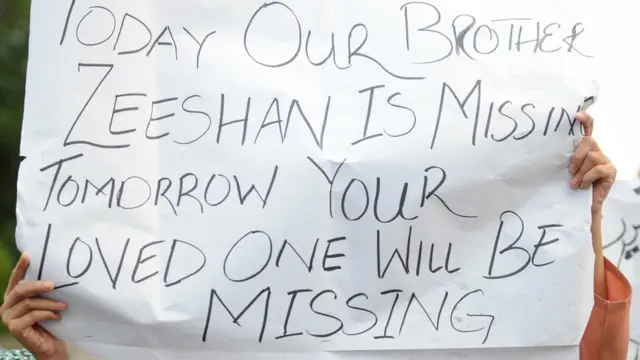 TODAY OUR BROTHER
ZEESHAN IS MISSING
TOMORROW YOUR
LOVED ONE WILL BE
MISSING